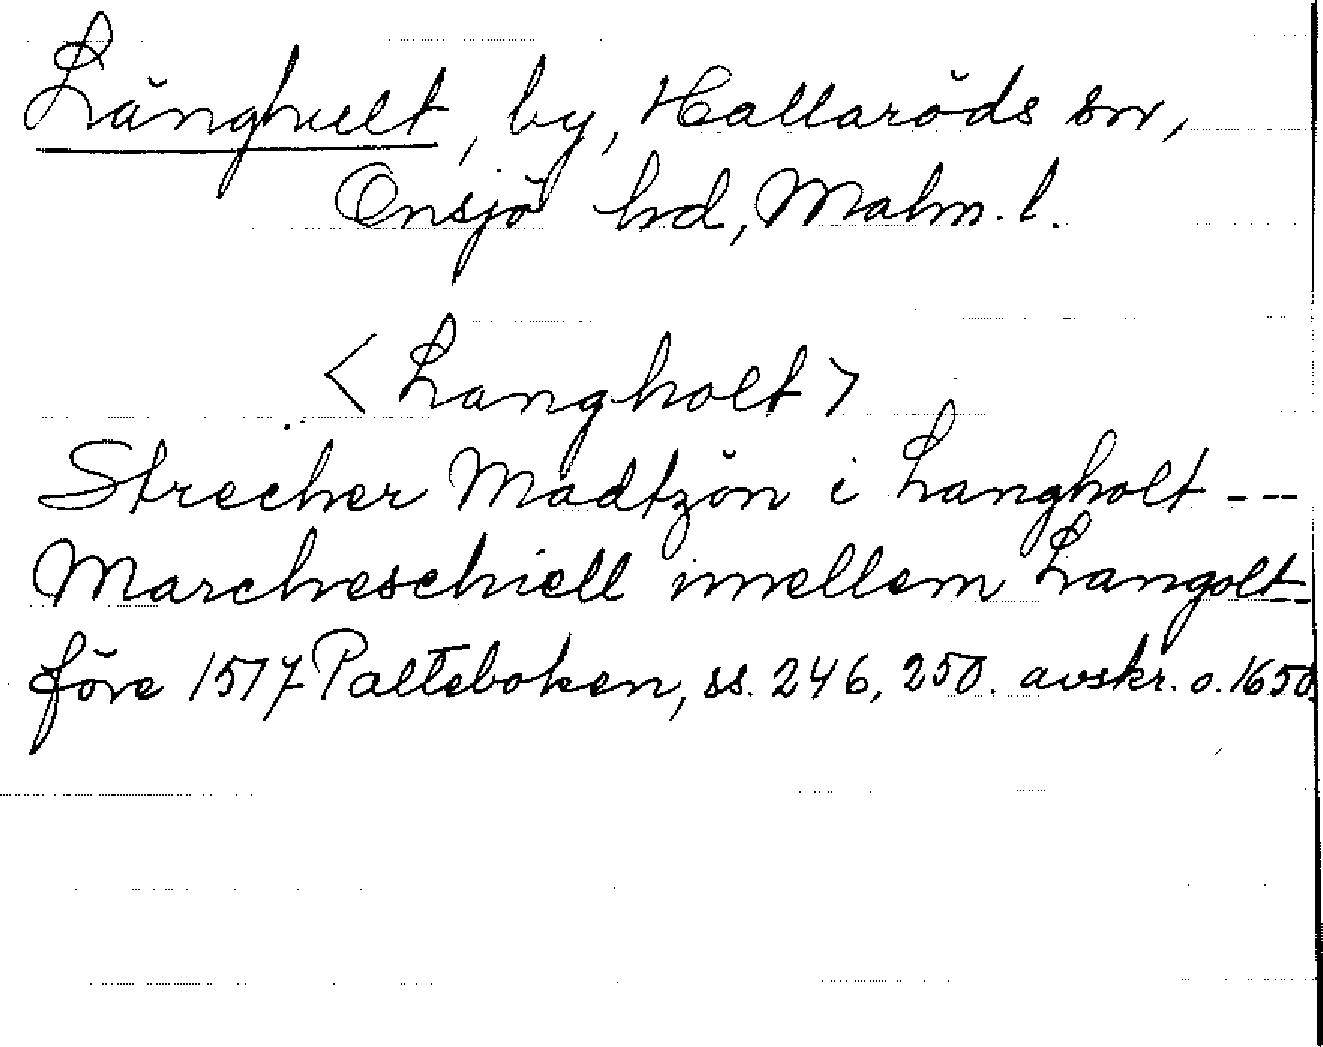 Långhult, by, Hallaröds sn,
Onsjö hd, Malm. l.
< Langholt >
Strecher Madtzön i Langholt ---
Marcheschiell imellem Langolt
före 1517 Palteboken, ss. 246, 250. avskr. o. 1650.